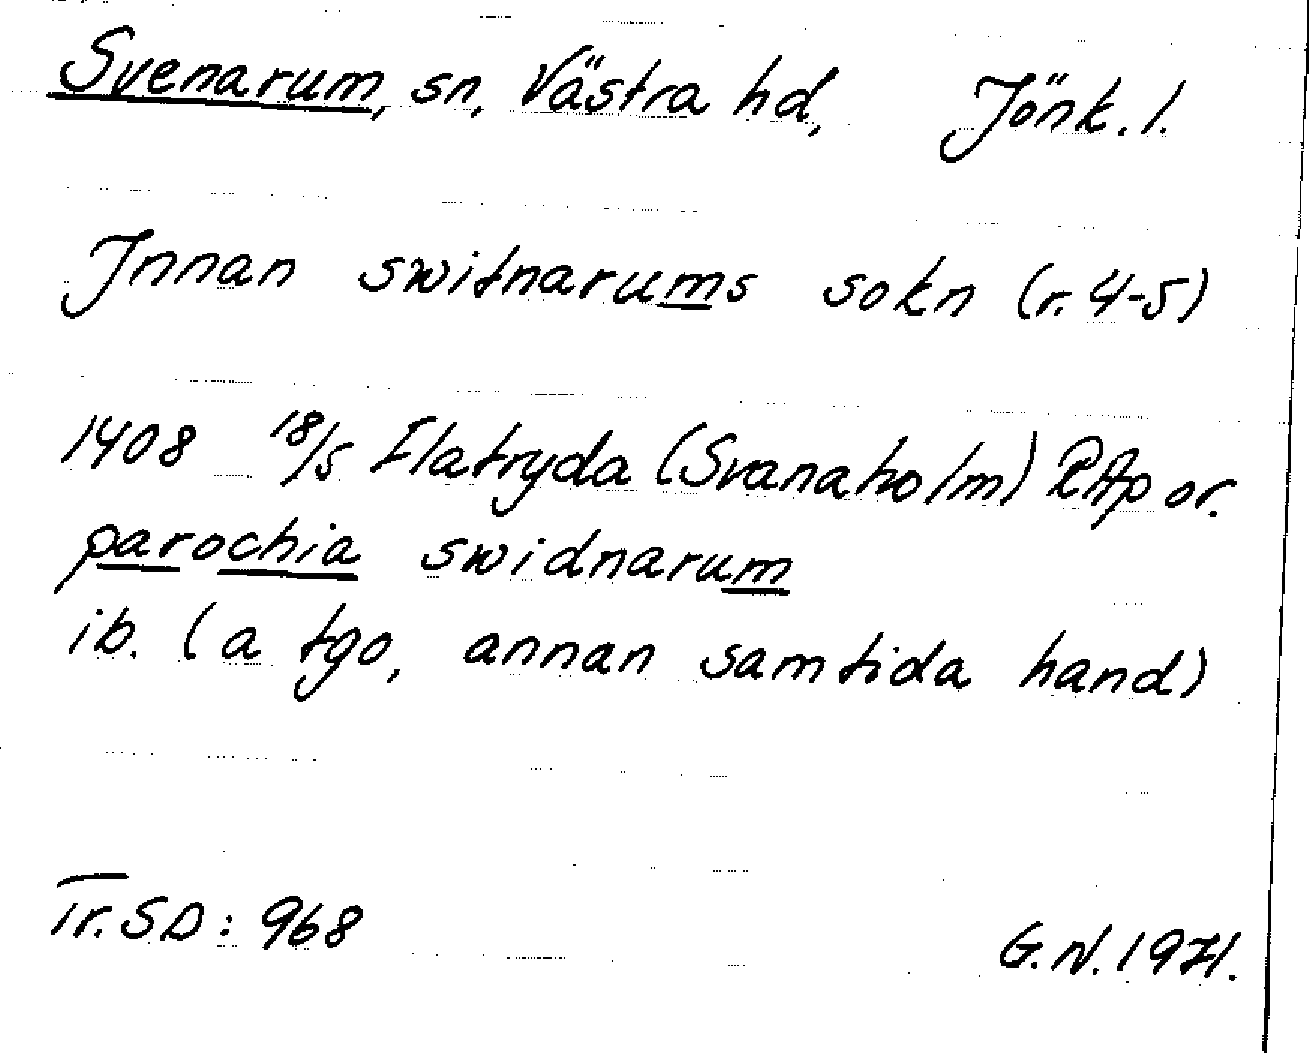 Svenarum, sn, Västra hd, Jönk. l.
Jnnan switnarums sokn (r. 4-5)
1408 18/5 Flatryda (Svanaholm) RAp or.
parochia swidnarum
ib. (a tgo, annan samtida hand)
Tr. SD: 968
G.N. 1971.